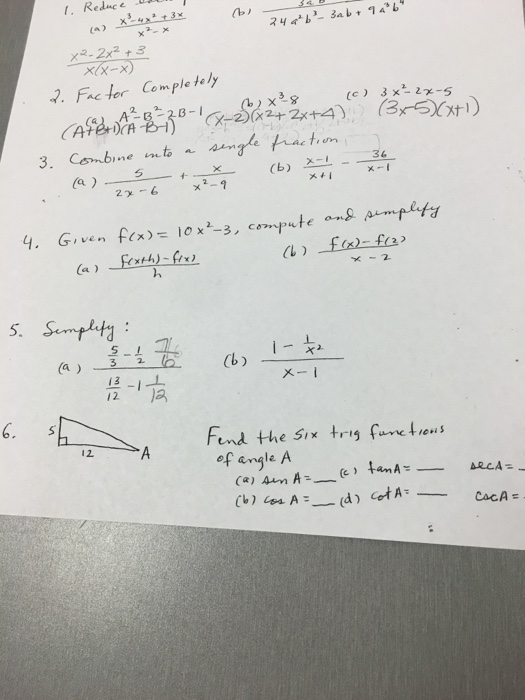 1. Reduce
(a) x³-4x²+3x / x²-x (b) 24a²b³-3ab+9a³b⁴
x²-2x²+3 / x(x-x)
2. Factor Completely
(a) A²-B²-2B-1 (b) x³-8 (c) 3x²-2x-5
(A+B+1)(A-B-1) (x-2)(x²+2x+4) (3x-5)(x+1)
3. Combine into a single fraction
(a) 5/(2x-6) + x/(x²-9) (b) (x-1)/(x+1) - 36/(x-1)
4. Given f(x) = 10x²-3, compute and simplify
(a) (f(x+h)-f(x))/h (b) (f(x)-f(2))/(x-2)
5. Simplify:
(a) (5/3 - 1/2)/(13/12 - 1) 7/6 1/12 (b) (1 - 1/x²)/(x-1)
6. 5 12 A Find the six trig functions
of angle A
(a) sin A = __ (c) tan A = __ sec A = _
(b) cos A = __ (d) cot A = __ csc A =